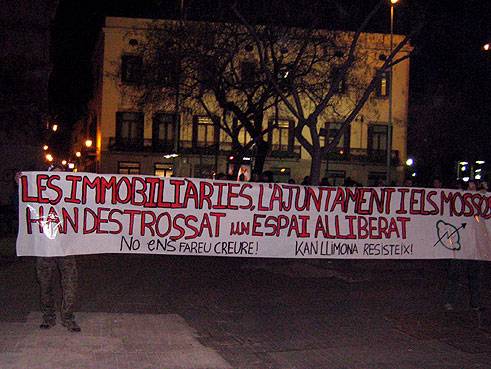 LES IMMOBILIARIES, L'AJUNTAMENT I ELS MOSSOS
HAN DESTROSSAT UN ESPAI ALLIBERAT
NO ENS FAREU CREURE! KAN LLIMONA RESISTEIX!